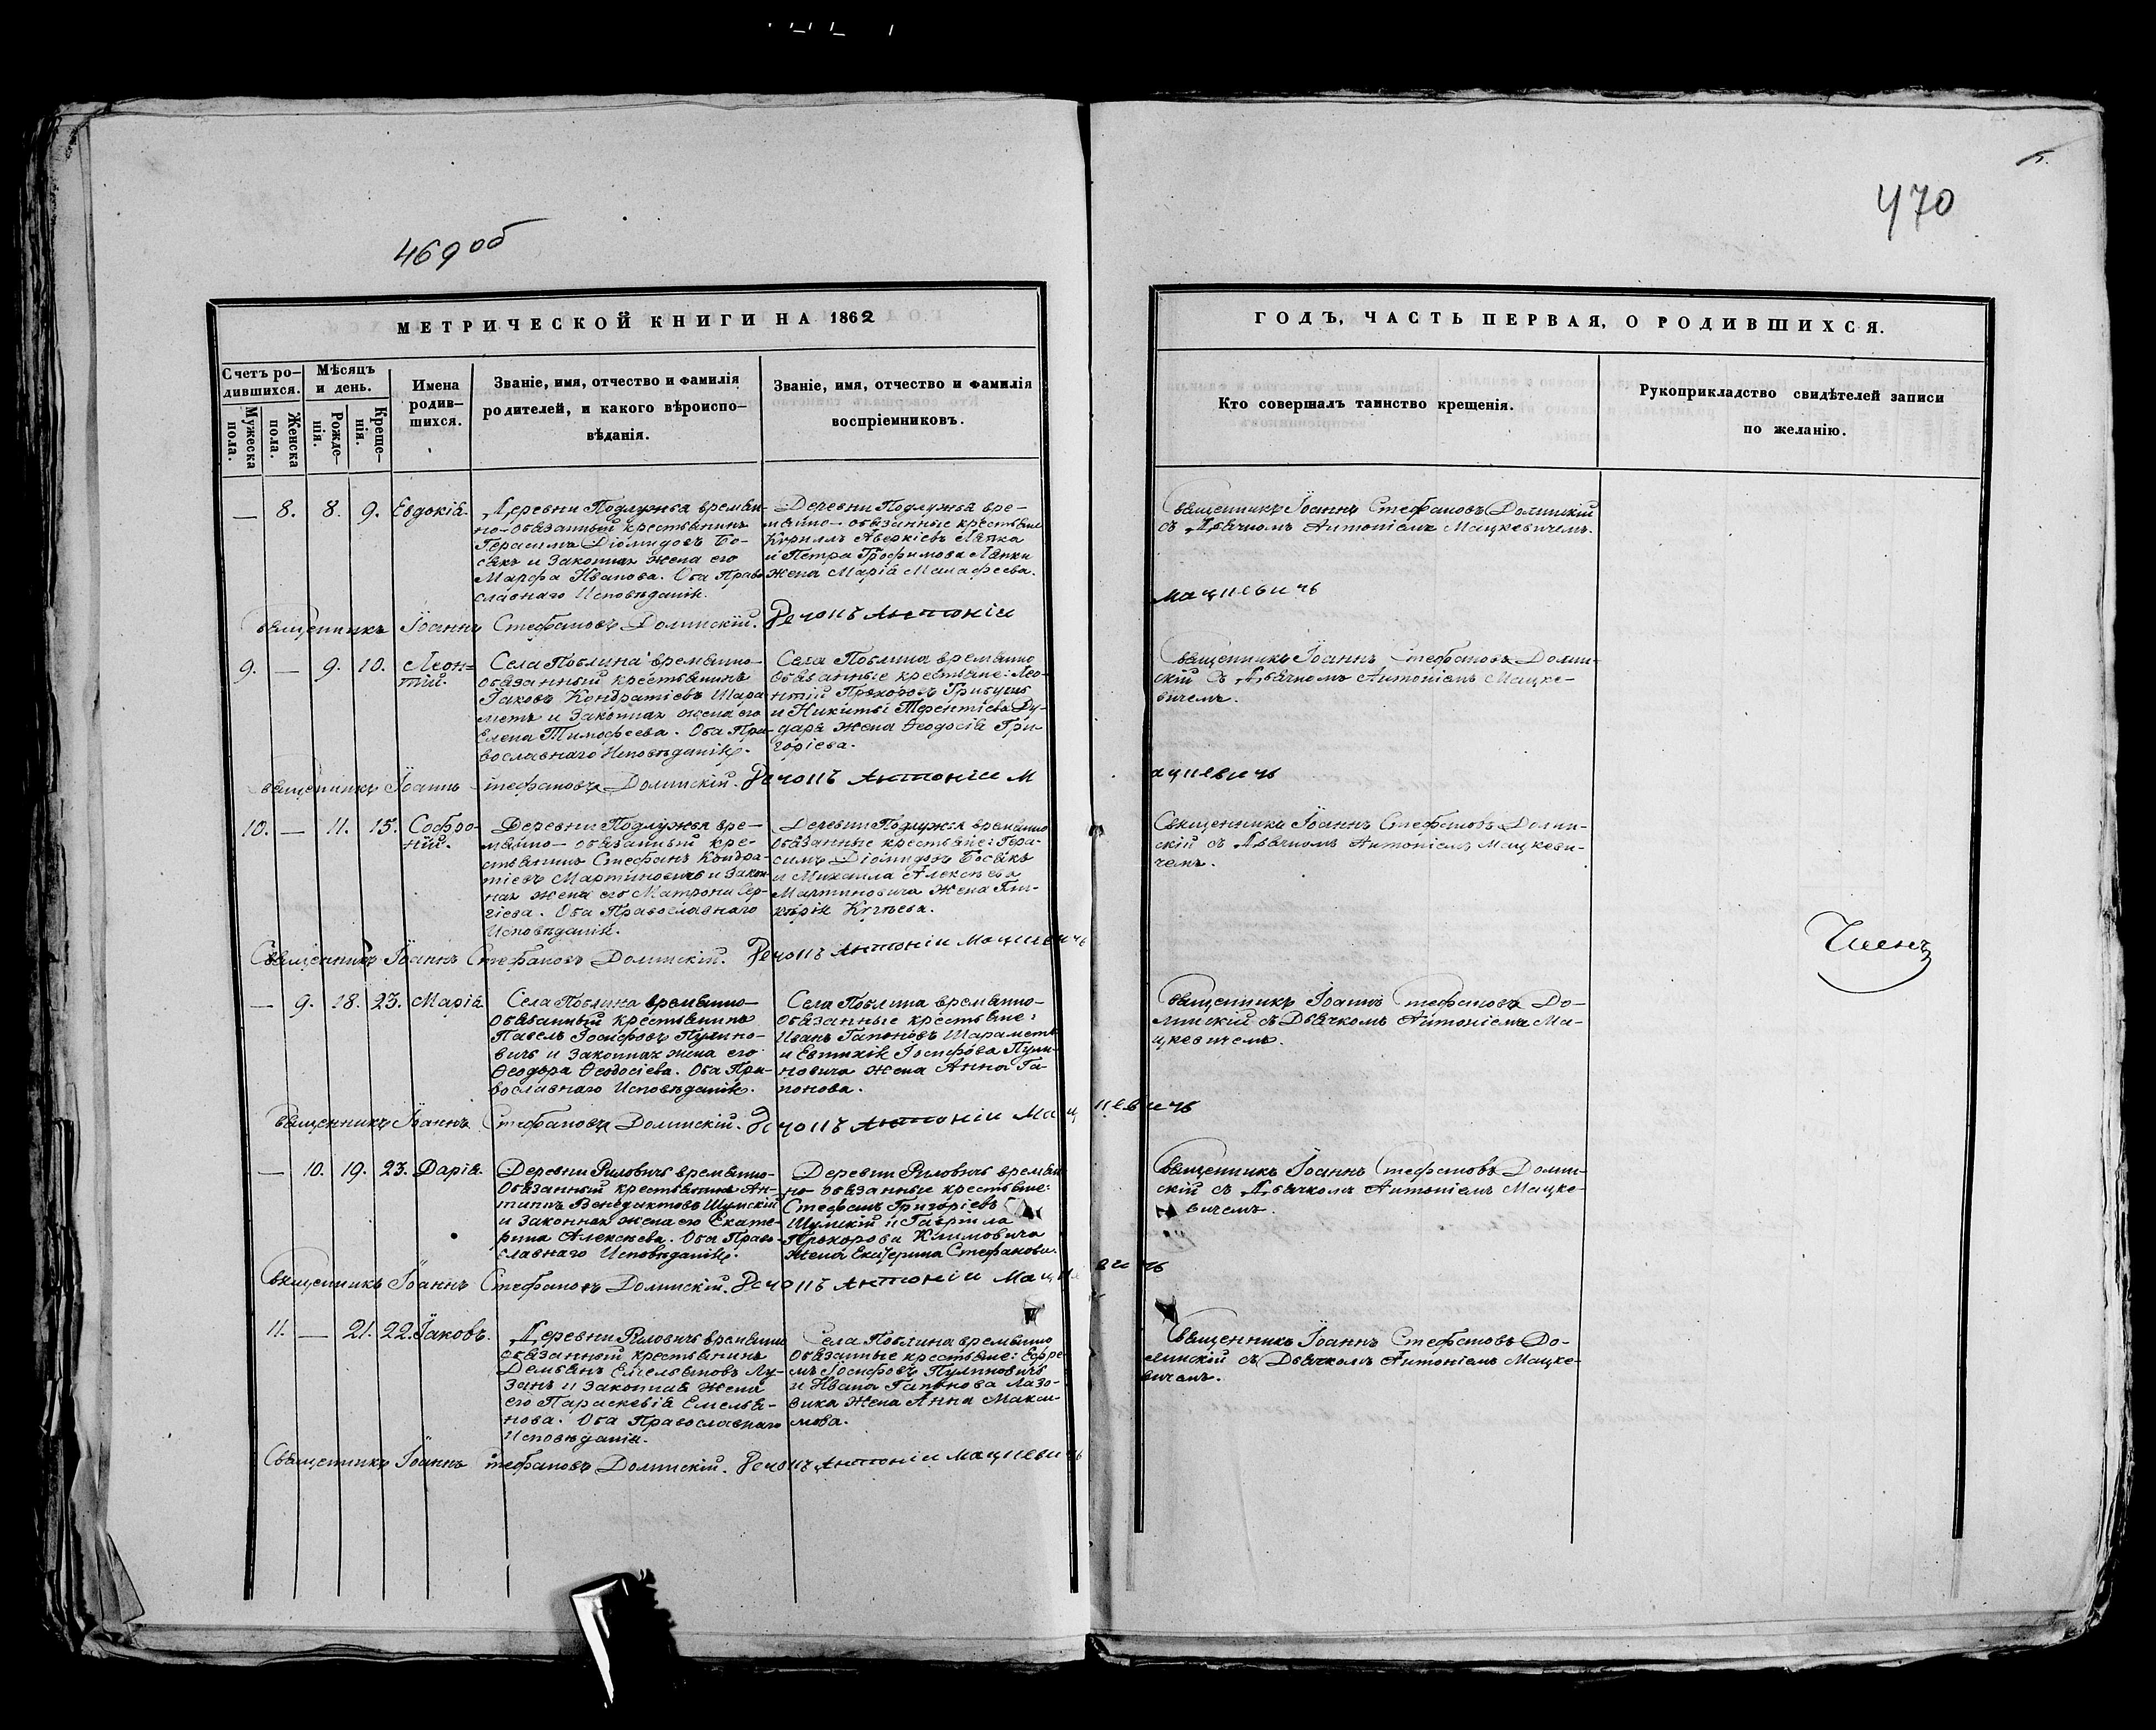 469 об
470
МЕТРИЧЕСКОЙ КНИГИ НА 1862
ГОДЪ, ЧАСТЬ ПЕРВАЯ, О РОДИВШИХСЯ.
Счетъ ро-
дившихся.
Мужеска
пола.
Женска
пола.
Мѣсяцъ
и день.
Рожде-
нія.
Креще-
нія.
Имена
родив-
шихся.
Званіе, имя, отчество и фамилія
родителей, и какого вѣроиспо-
вѣданія.
Званіе, имя, отчество и фамилія
воспріемниковъ.
Кто совершалъ таинство крещенія.
Рукоприкладство свидѣтелей записи
по желанію.
— 8. 8. 9. Евдокія.
Деревни Подлужья времен-
но-обязанный крестьянинъ
Герасимъ Діомидовъ Бо-
сякъ и законная жена его
Марфа Иванова. Оба Право-
славнаго Исповѣданія.
Деревни Подлужья вре-
менно-обязанные крестьяне
Кириллъ Аверкіевъ Ляпка
и Петра Трофимова Ляпки
жена Марія Малафеева.
Священникъ Іоаннъ Стефановъ Долинскій
съ Дьячкомъ Антоніемъ Мацкевичемъ.
Священникъ Іоаннъ Стефановъ Долинскій. Дечокъ Антоніи
Мацкевичъ
9. — 9. 10. Леон=
тій.
Села Поблина временно-
обязанный крестьянинъ
Іаковъ Кондратіевъ Шара-
метъ и законная жена его
Елена Тимофеева. Оба Пра-
вославнаго Исповѣданія.
Села Поблина временно
обязанные крестьяне: Лео-
нтій Прохоровъ Грибушъ
и Никиты Терентіева Ду-
даря жена Ѳеодосія Гри-
горіева.
Священникъ Іоаннъ Стефановъ Долин-
скій съ Дьячкомъ Антоніемъ Мацке-
вичемъ.
Священникъ Іоаннъ Стефановъ Долинскій. Дечокъ Антоніи М
ацкевичъ
10. — 11. 15. Софро-
ній.
Деревни Подлужья вре-
менно-обязанный кре-
стьянинъ Стефанъ Кондра-
тіевъ Мартиновичъ и закон-
ная жена его Матрона Сер-
гіева. Оба Православнаго
Исповѣданія.
Деревни Подлужья временно
обязанные крестьяне: Гера-
симъ Діомидовъ Босякъ
и Михаила Алексѣева
Мартиновича жена Гли-
керія
Священникъ Іоаннъ Стефановъ Долин-
скій съ Дьячкомъ Антоніемъ Мацкеви-
чемъ.
Священникъ Іоаннъ Стефановъ Долинскій. Дечокъ Антоніи Мацкевичъ
Членъ
— 9. 18. 23. Марія.
Села Поблина временно-
обязанный крестьянинъ
Павелъ Іосифовъ Пулино-
вичъ и законная жена его
Ѳеодора Ѳеодосіева. Оба Пра-
вославнаго Исповѣданія.
Села Поблина временно-
обязанные крестьяне:
Иванъ Гапоновъ Шараметъ
и Евтихія Іосифова Пули-
новича жена Анна Га-
понова.
Священникъ Іоаннъ Стефановъ До-
линскій съ Дьячкомъ Антоніемъ Ма-
цкевичемъ.
Священникъ Іоаннъ Стефановъ Долинскій. Дечокъ Антоніи Мацкевичъ
— 10. 19. 23. Дарія.
Деревни Риловичъ временно-
обязанный крестьянинъ Ан-
типъ Венедиктовъ Шумскій
и законная жена его Екате-
рина Алексѣева. Оба Право-
славнаго Исповѣданія.
Деревни Риловичъ времен-
но обязанные крестьяне:
Стефанъ Григоріевъ
Шумскій и Гавріила
Прохорова Климовича
жена Екатерина Стефанова.
Священникъ Іоаннъ Стефановъ Долин-
скій съ Дьячкомъ Антоніемъ Мацке-
вичемъ.
Священникъ Іоаннъ Стефановъ Долинскій. Дечокъ Антоніи Мацкевичъ
11. — 21. 22. Іаковъ.
Деревни Риловичъ временно
обязанный крестьянинъ
Демьянъ Емельяновъ Лу-
занъ и законная жена
его Параскевія Емелья-
нова. Оба Православнаго
Исповѣданія.
Села Поблина временно
обязанные крестьяне: Ефре-
мъ Іосифовъ Пулиновичъ
и Ивана Гапонова Лазо-
вика жена Анна Макси-
мова.
Священникъ Іоаннъ Стефановъ До-
линскій съ Дьячкомъ Антоніемъ Мацке-
вичемъ.
Священникъ Іоаннъ Стефановъ Долинскій. Дечокъ Антоніи Мацкевичъ